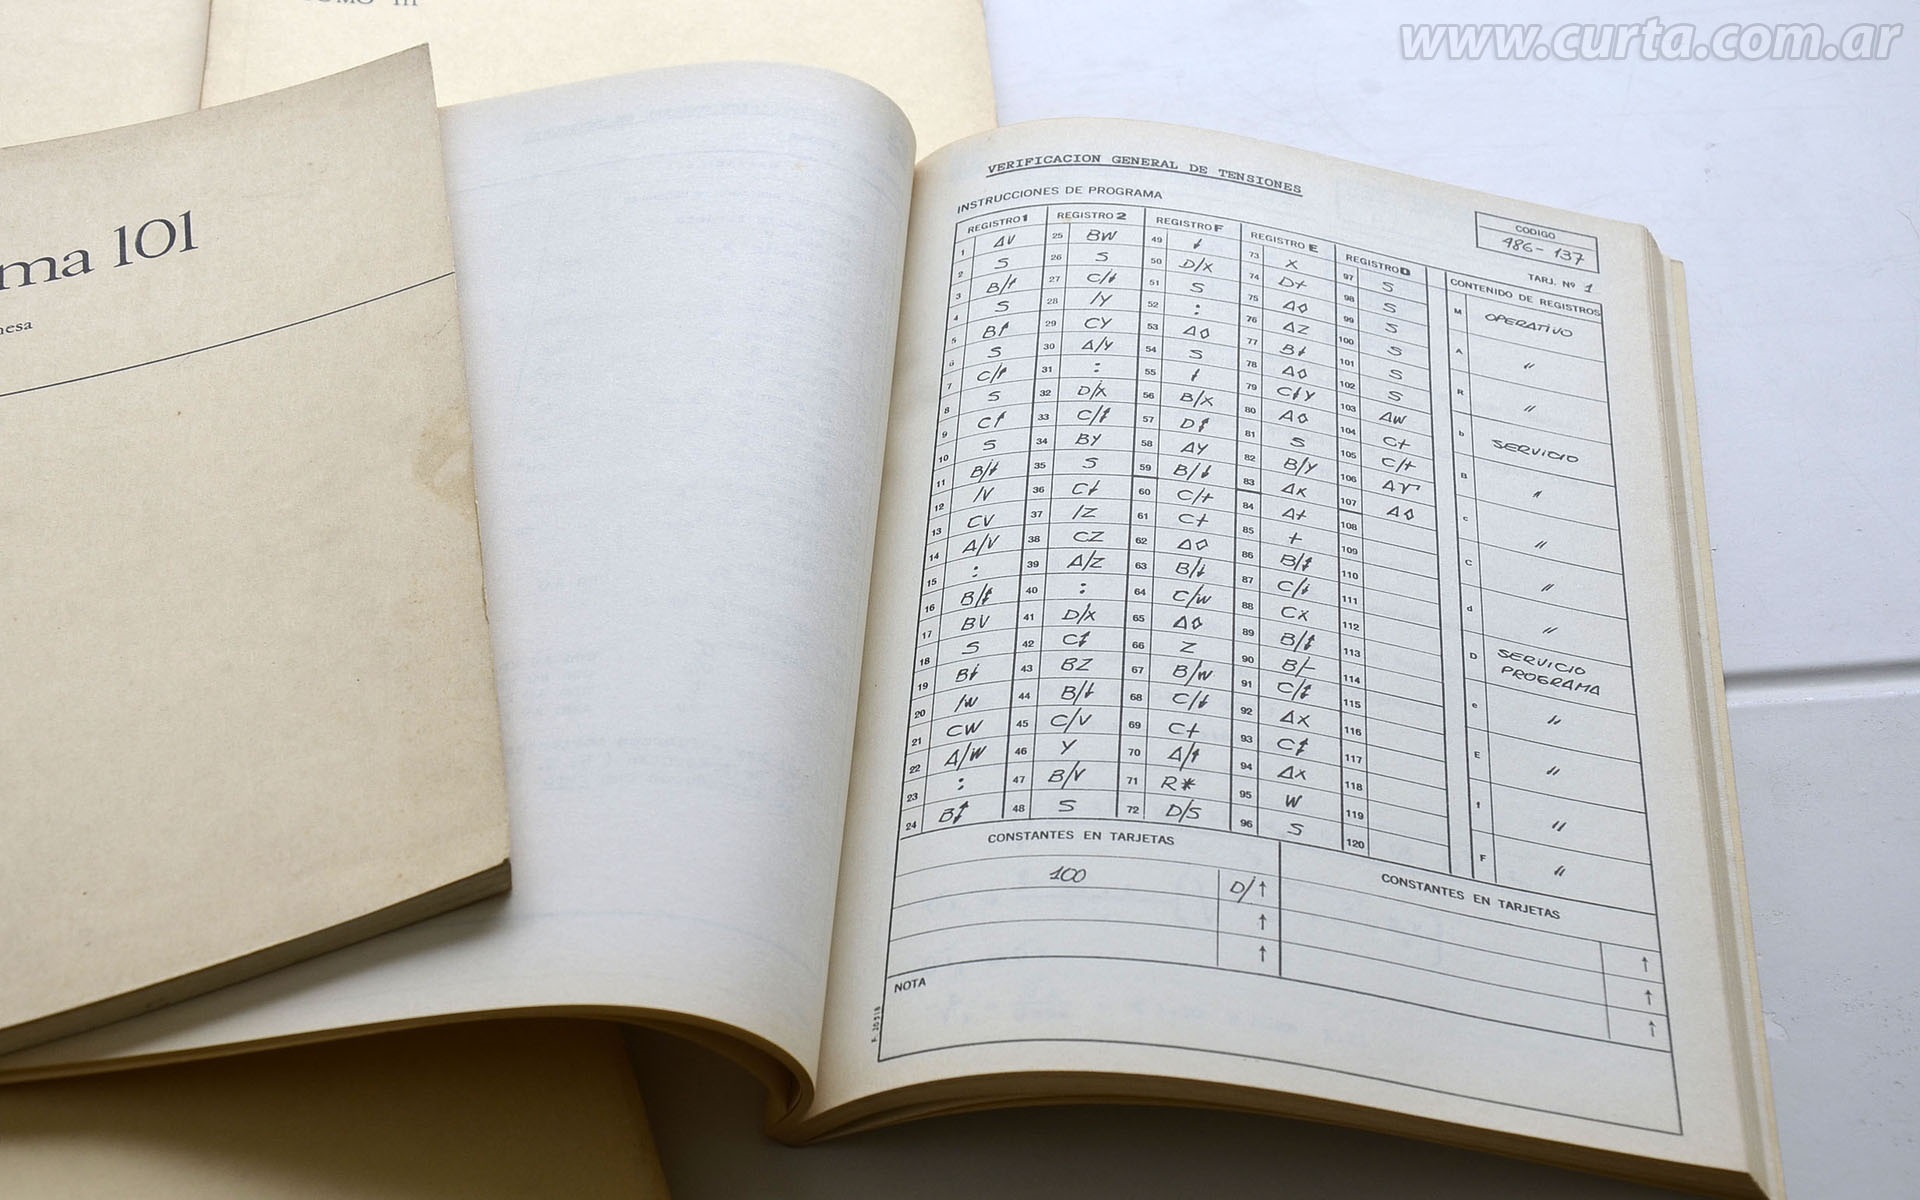 www.curta.com.ar
TOMO III
ma 101
nesa
VERIFICACION GENERAL DE TENSIONES
INSTRUCCIONES DE PROGRAMA
CODIGO
486-137
TARJ. Nº 1
REGISTRO 1 REGISTRO 2 REGISTRO F REGISTRO E REGISTRO D CONTENIDO DE REGISTROS
1 AV 25 BW 49 ↓ 73 X 97 S
2 S 26 S 50 D/X 74 D+ 98 S
3 B/↑ 27 C/↓ 51 S 75 A◊ 99 S
4 S 28 /Y 52 : 76 AZ 100 S
5 B↑ 29 CY 53 A◊ 77 B↓ 101 S
6 S 30 A/Y 54 S 78 A◊ 102 S
7 C/↑ 31 : 55 ↑ 79 C↓Y 103 AW
8 S 32 D/X 56 B/X 80 A◊ 104 C+
9 C↑ 33 C/↕ 57 D↕ 81 S 105 C/+
10 S 34 BY 58 AY 82 B/Y 106
11 B/↓ 35 S 59 B/↓ 83 AX 107 A◊
12 /V 36 C↓ 60 C/+ 84 A+ 108
13 CV 37 /Z 61 C+ 85 + 109
14 A/V 38 CZ 62 A◊ 86 B/↕ 110
15 : 39 A/Z 63 B/↓ 87 C/↓ 111
16 B/↕ 40 : 64 C/W 88 CX 112
17 BV 41 D/X 65 A◊ 89 B/↕ 113
18 S 42 C↕ 66 Z 90 B/- 114
19 B↓ 43 BZ 67 B/W 91 C/↕ 115
20 /W 44 B/↓ 68 C/↓ 92 AX 116
21 CW 45 C/V 69 C+ 93 C↕ 117
22 A/W 46 Y 70 A/↑ 94 AX 118
23 : 47 B/V 71 R* 95 W 119
24 B↕ 48 S 72 D/S 96 S 120
M OPERATIVO
A "
R "
b SERVICIO
B "
c "
C "
d "
D SERVICIO PROGRAMA
e "
E "
f "
F "
CONSTANTES EN TARJETAS
100 D/↑
↑
↑
CONSTANTES EN TARJETAS
↑
↑
↑
NOTA